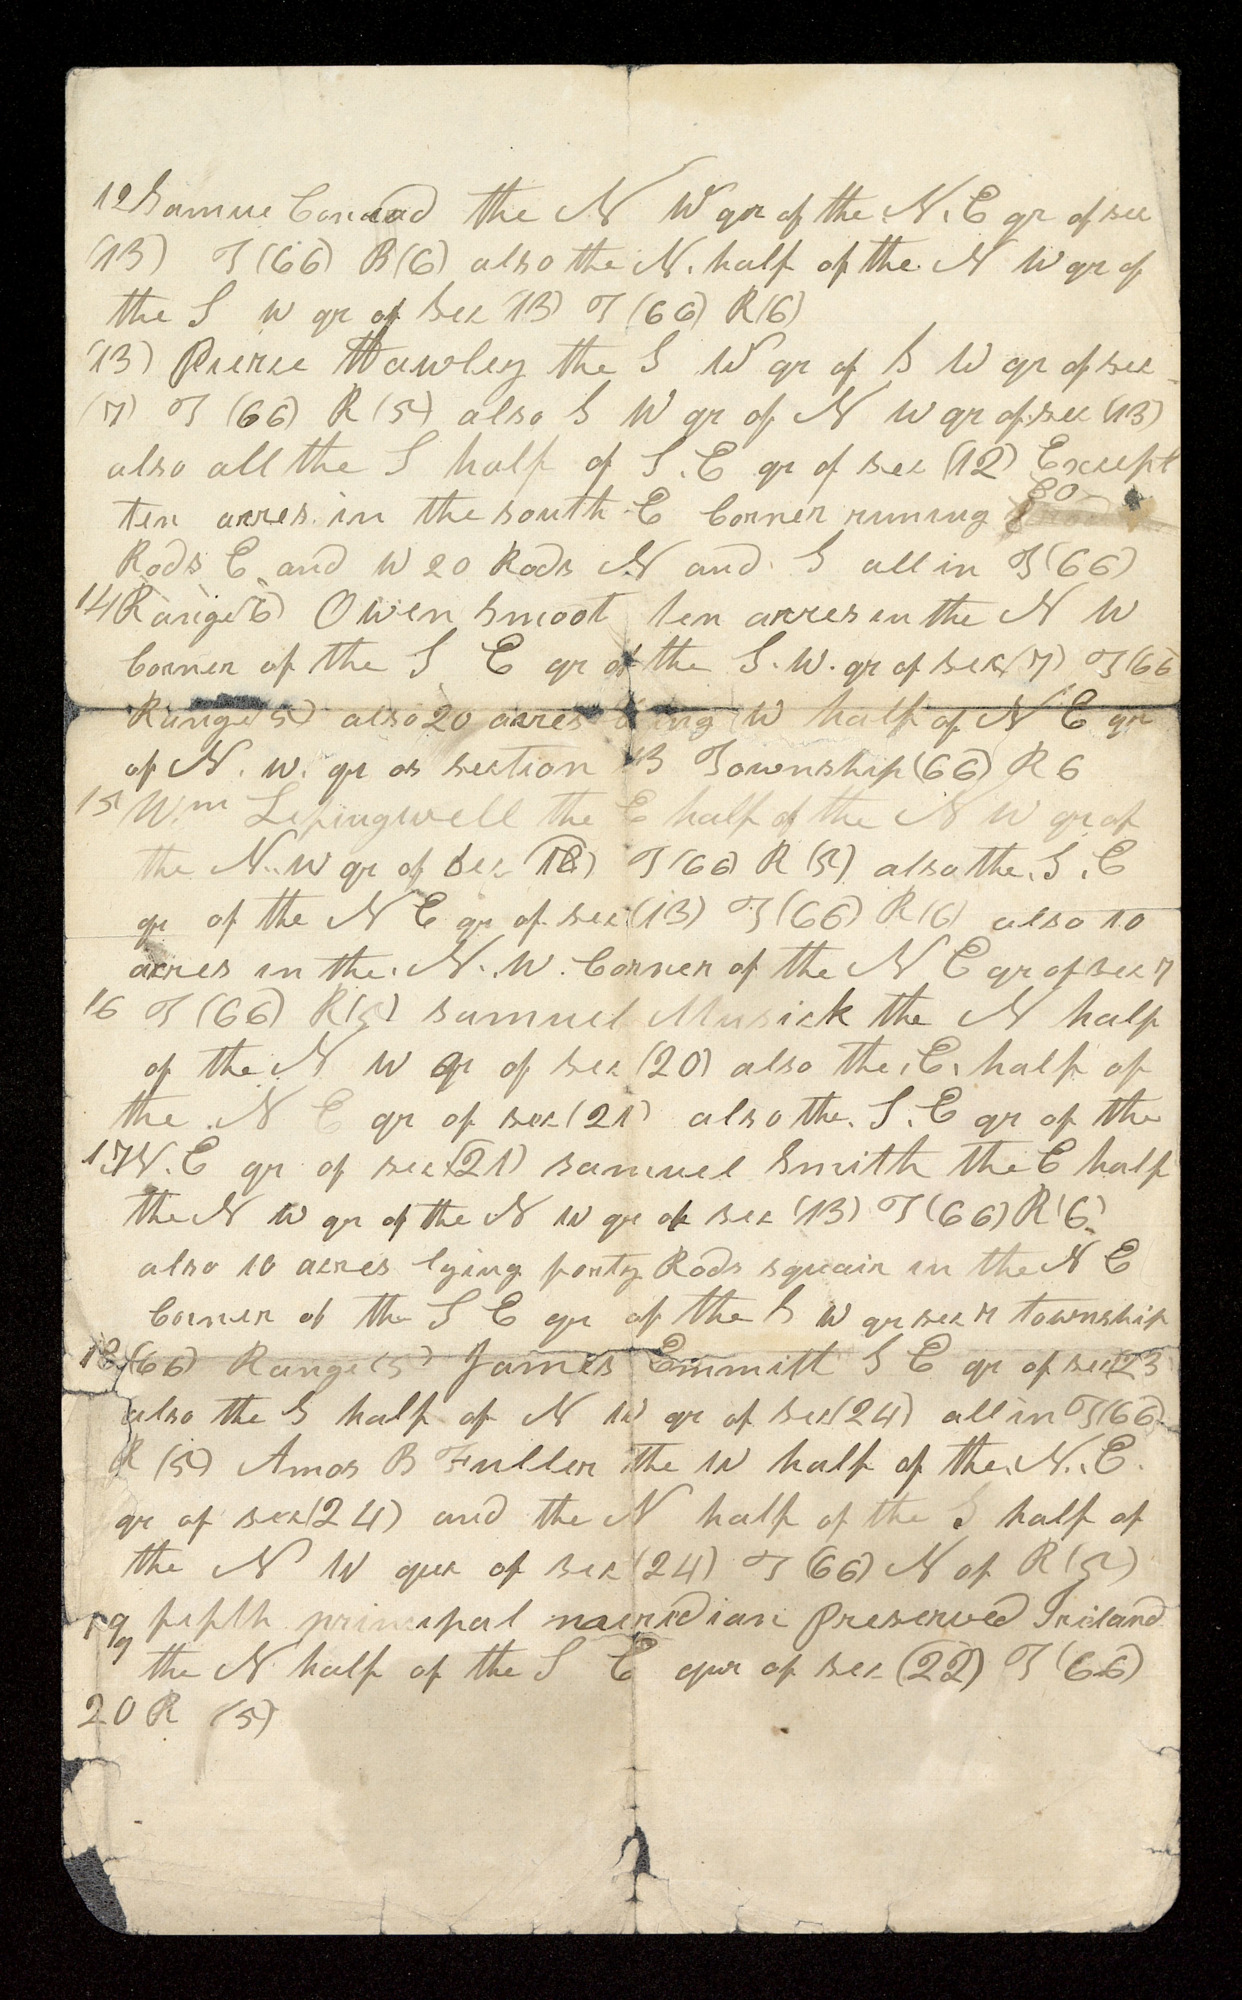 12 Samue Conrad the N W qr of the N. E qr of sec
(13) T (66) R (6) also the N. half of the N W qr of
the S W qr of sec 13) T (66) R (6)
(13) Pierce Hawley the S W qr of S W qr of sec
(7) T (66) R (5) also S W qr of N W qr of sec (13)
also all the S half of S. E qr of sec (12) Except
ten acres in the south E Corner runing 80
Rods E and W 20 Rods N and S all in T (66)
14 Range (6) Owen Smoot ten acres in the N W
Corner of the S E qr of the S. W. qr of sec (7) T (66
Range (5) also 20 acres being W half of N E qr
of N. W. qr os section 13 Township (66) R 6
15 Wm Lepingwell the E half of the N W qr of
the N. W qr of sec (18) T (66) R (5) also the S. E
qr of the N E qr of sec (13) T (66) R (6) also 10
acres in the N. W. Corner of the N E qr of sec 7
16 T (66) R (5) samuel Musick the N half
of the N W qr of sec (20) also the E. half of
the N E qr of sec (21) also the S. E qr of the
17 N. E qr of sec (21) samuel Smith the E half
the N W qr of the N W qr of sec (13) T (66) R (6)
also 10 acres lying forty Rods squair in the N E
Corner of the S E qr of the S W qr sec 7 township
18 (66) Range (5) James Emmitt S E qr of sec (23
also the S half of N W qr of sec (24) all in T (66)
R (5) Amos B Fuller the W half of the N. E.
qr of sec (24) and the N half of the S half of
the N W qur of sec (24) T (66) N of R (5)
19 fifth principal meridian Preserved Iriland
the N half of the S E qur of sec (22) T (66)
20 R (5)